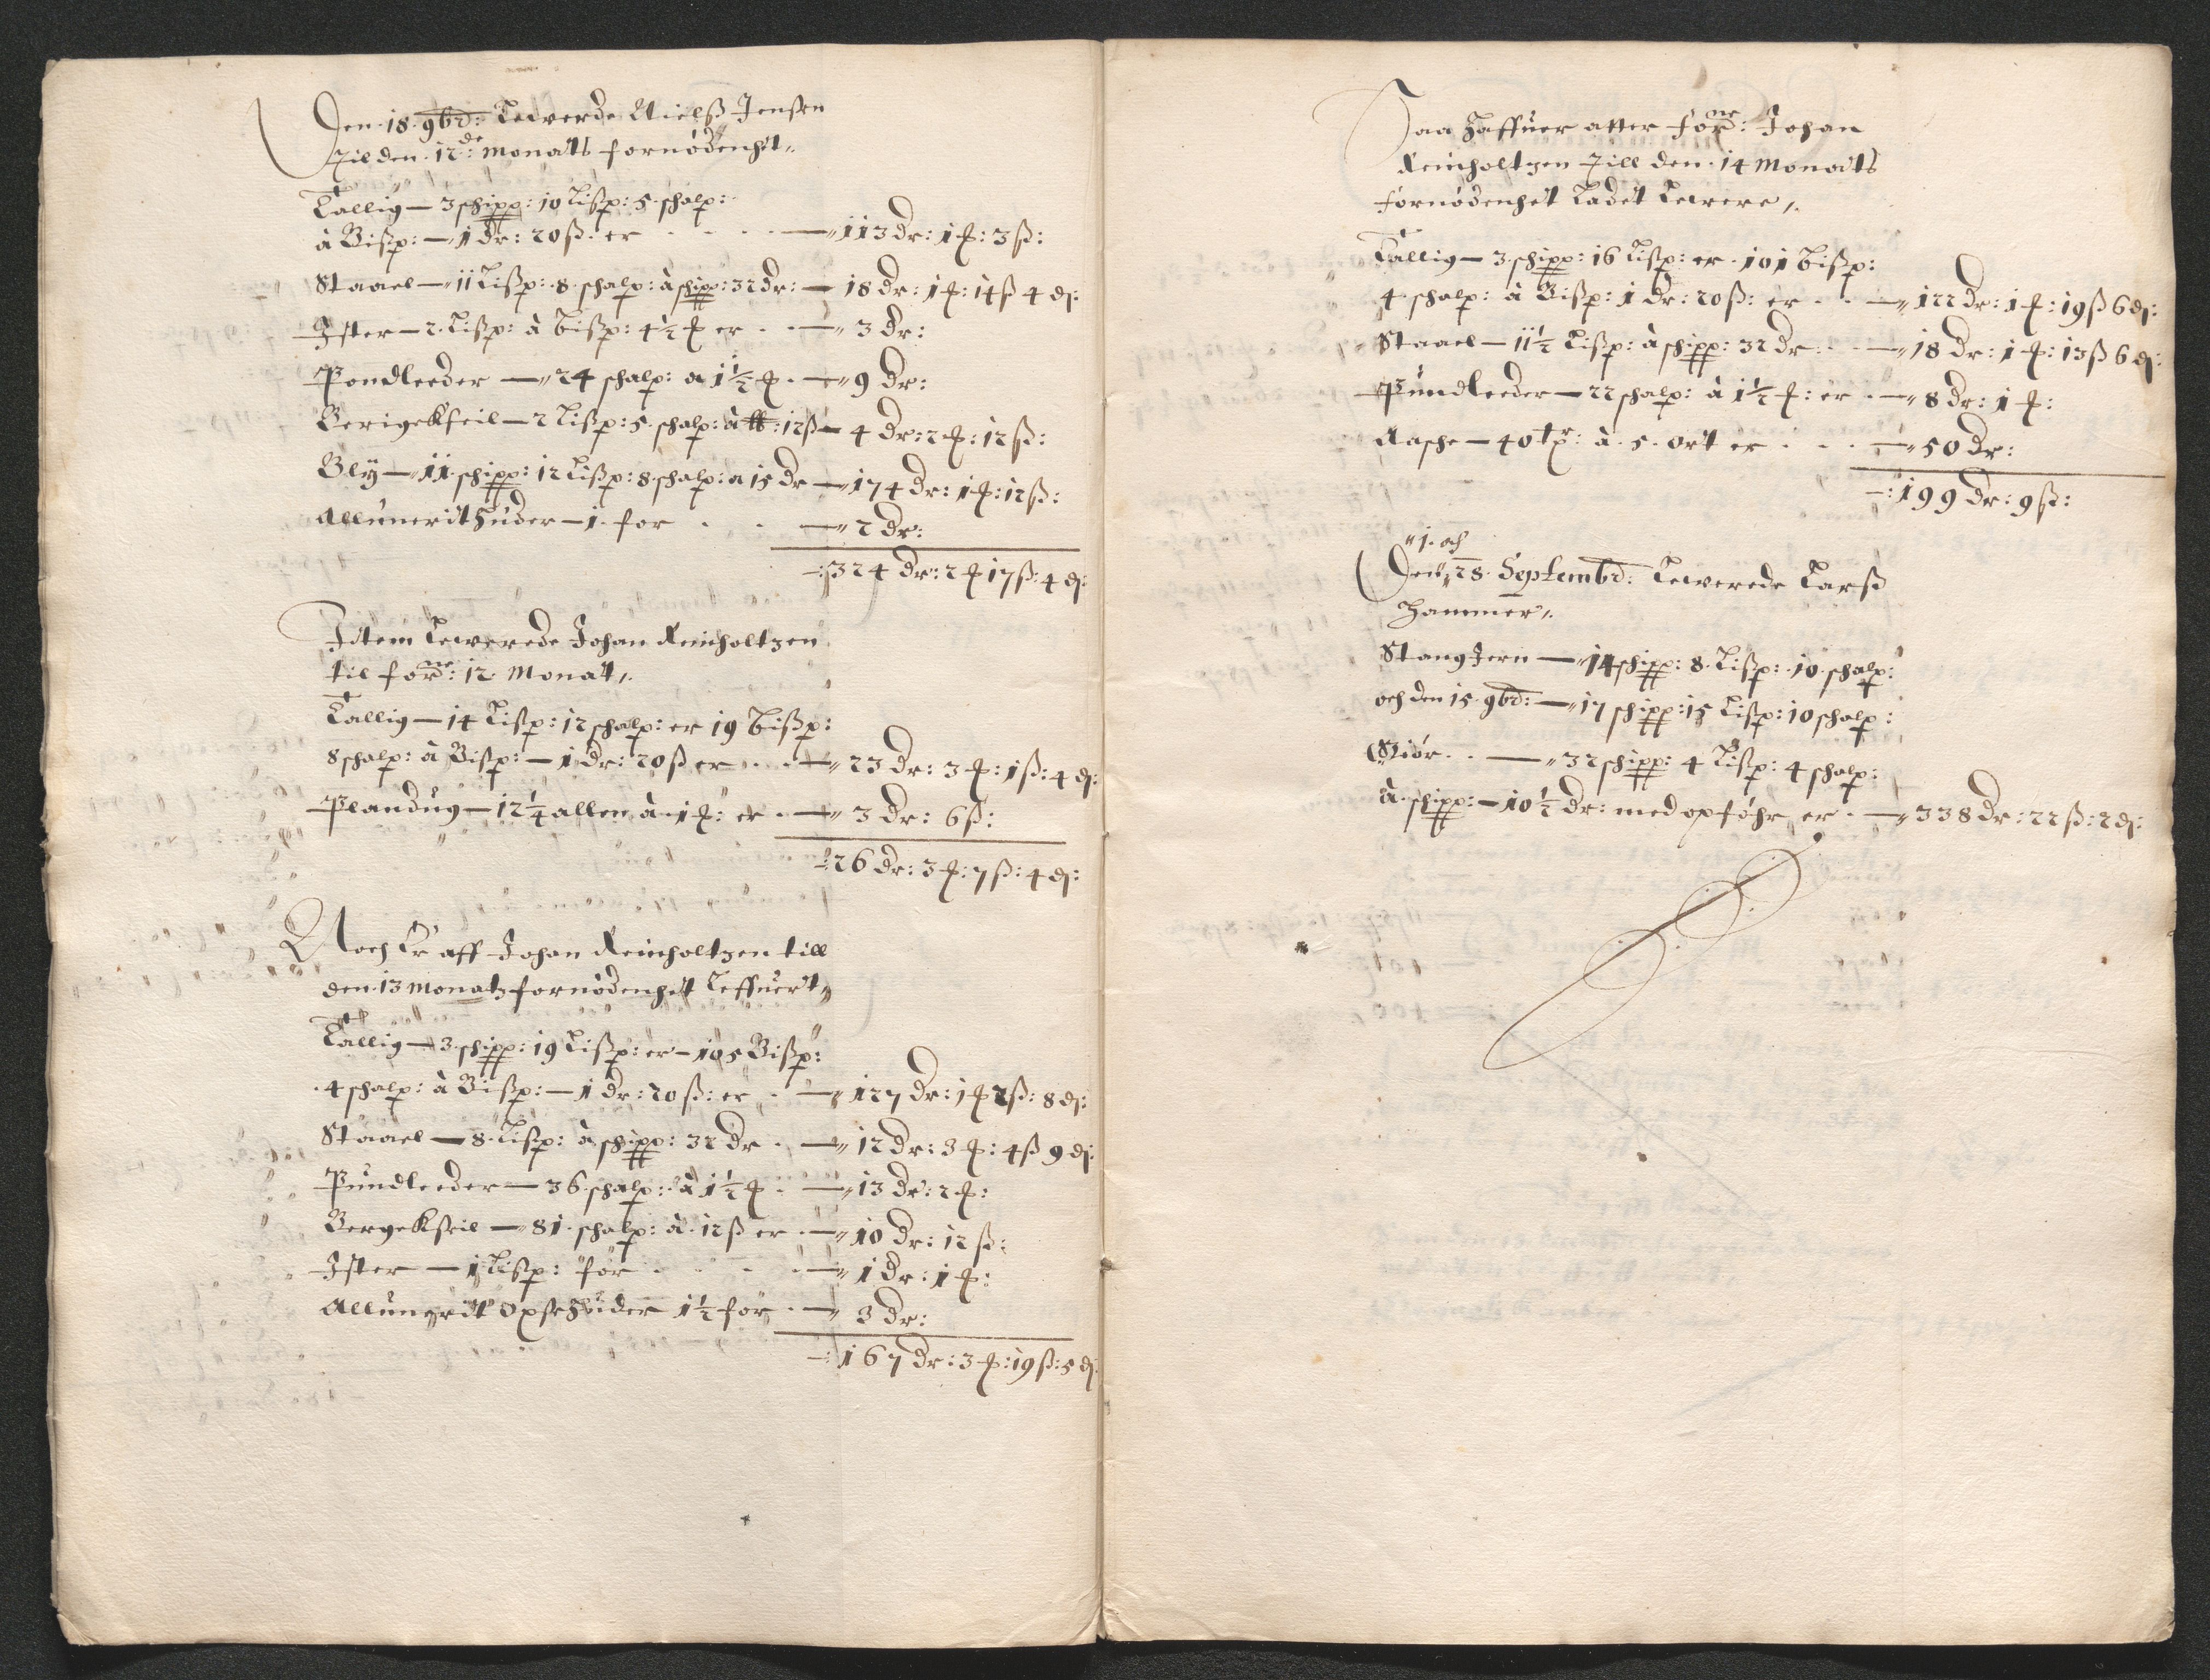 Den 18. 9bd: Leverde Nielß Jensen
Til den 12de: Monatz fornødenhet„
Tallig — 3 schipp: 10 Lißp: 5 schalp:
à Bißp: — 1 dr: 20 ß: er — 113 dr: 1 ƒ: 3 ß:
Staael — 11 Lißp: 8 schalp: à schipp: 32 dr: — 18 dr: 1 ƒ: 14 ß 4 ₰:
Ister — 2 Lißp: à bißp: 4½ ƒ er — 3 dr:
Pondleeder — 24 schalp: a 1½ ƒ — 9 dr:
Berigekseil — 2 Lißp: 5 schalp: à ℔: 12 ß — 4 dr: 2 ƒ: 12 ß:
Blÿ — 11 schipp: 12 Lißp: 8 schalp: a 15 dr — 174 dr: 1 ƒ: 12 ß:
Allunerit Huder — 1 for — 2 dr:
—: 324 dr: 2 ƒ 17 ß: 4 ₰:
Item Leverede Johan Reinholtzen
til forne: 12 Monat„
Tallig — 14 Lißp: 12 schalp: er 19 bißp:
8 schalp: à Bißp: — 1 dr: 20 ß er — 23 dr: 3 ƒ: 1 ß: 4 ₰:
Plandug — 12¼ allen à 1 ƒ: er — 3 dr: 6 ß:
—: 26 dr: 3 ƒ: 7 ß: 4 ₰:
Noch Er aff Johan Reinholtzen till
den 13 Monatz fornødenhet Leffuert„
Tallig — 3 schipp: 19 Lißp: er — 105 Bißp:
4 schalp: à Bißp: — 1 dr: 20 ß: er — 127 dr: 1 ƒ 2 ß: 8 ₰:
Staael — 8 Lißp: à schipp: 32 dr — 12 dr: 3 ƒ: 4 ß 9 ₰:
Pundleeder — 36 schalp: à 1½ ƒ — 13 dr: 2 ƒ:
Bergekseil — 81 schalp: à 12 ß er — 10 dr: 12 ß:
Ister — 1 Lißp: for — 1 dr: 1 ƒ:
Allunerit Oxsehuder 1½ for — 3 dr:
—: 167 dr: 3 ƒ: 19 ß: 5 ₰:
Saa Haffuer atter forne: Johan
Reinholtzen Till den 14 Monatz
fornødenhet Ladet Levere„
Tallig — 3 schipp: 16 Lißp: er 101 bißp:
4 schalp: à Bißp: 1 dr: 20 ß: er — 122 dr: 1 ƒ: 19 ß 6 ₰:
Staael — 11½ Lißp: à schipp: 32 dr — 18 dr: 1 ƒ: 13 ß 6 ₰:
Pundleeder — 22 schalp: à 1½ ƒ: er — 8 dr: 1 ƒ:
Aasche — 40 tr: à 5 ort er — 50 dr:
—: 199 dr: 9 ß:
„1. och
Den 28. Septembd: Leverede Larß
Hammer„
Stang Jern — 14 schipp: 8 Lißp: 10 schalp:
och den 15 9bd: — 17 schipp: 15 Lißp: 10 schalp:
Giør — 32 schipp: 4 Lißp: 4 schalp:
à schipp: — 10½ dr: med opføhr er — 338 dr: 22 ß: 2 ₰: